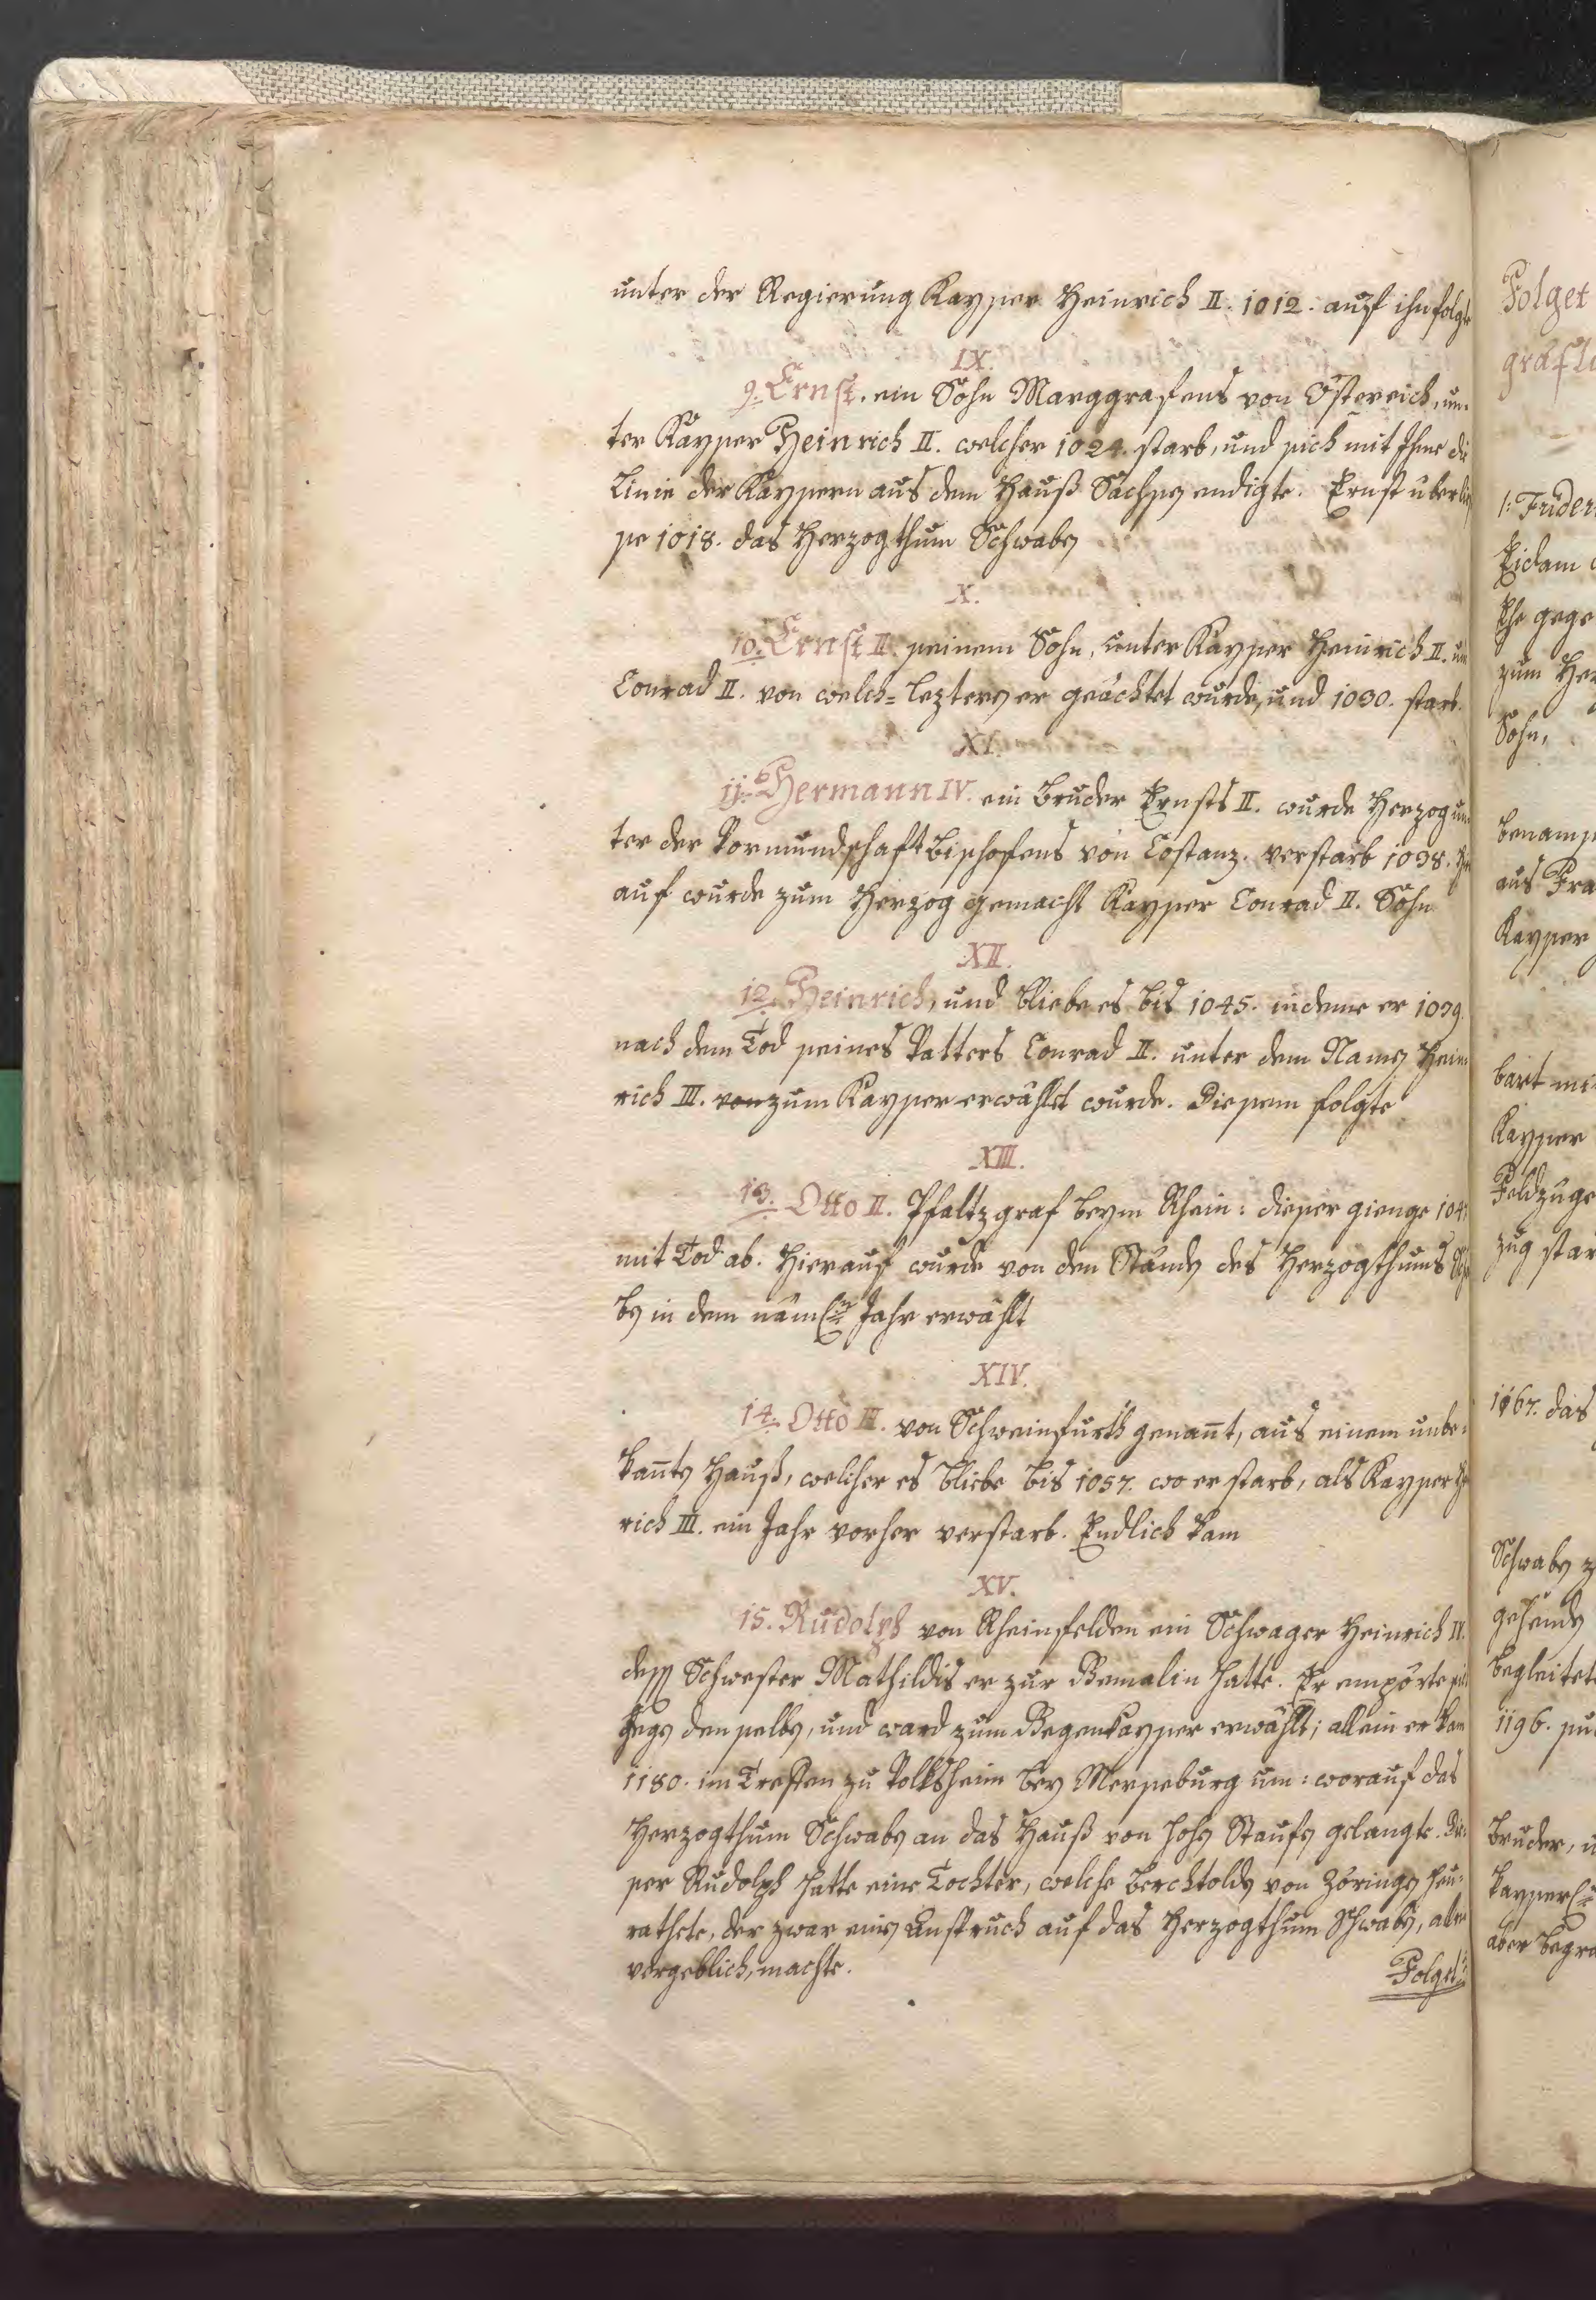 unter der Regierung Kayser Heinrich II. 1012. auf ihn folgte
IX.
9. Ernst. ein Sohn Marggrafens von Östereich, un-
ter Kayser Heinrich II. welcher 1024. starb, und sich mit Ihme die
Linie der Kaysern aus dem Hauß Sachsen endigte. Ernst überlies
se 1018. das Herzogthum Schwaben
X.
10. Ernst II. seinem Sohn, unter Kayser Heinrich II. und
Conrad II. von welch= lezteren er geächtet wurde, und 1030. starb.
XI.
11. Hermann IV. ein Bruder Ernsts II. wurde Herzog un-
ter der Vormundschaft Bischofens von Costanz. verstarb 1038.
auf wurde zum Herzog gemacht Kayser Conrad II. Sohn
XII.
12. Heinrich, und bliebe es bis 1045. indeme er 1039.
nach dem Tod seines Vatters Conrad II. unter dem Namen Hein
rich III. von zum Kayser erwählet wurde. Diesem folgte
XIII.
13. Otto II. Pfaltzgraf beym Rhein: dieser gienge 104
mit Tod ab. Hierauf wurde von den Ständen des Herzogthums Schwa
ben in dem nämlichen Jahr erwählt
XIV.
14. Otto III. von Schweinfurth genannt, aus einem unbe-
kannten Hauß, welcher es bliebe bis 1057. wo er starb, als Kayser
rich III. ein Jahr vorher verstarb. Endlich kam
XV.
15. Rudolph von Rheinfelden ein Schwager Heinrich IV.
dessen Schwester Mathildis er zur Gemalin hatte. Er empörte sich
gegen denselben, und ward zum Gegenkayser erwählt; allein er kam
1180. im Treffen zu Volksheim bey Merseburg um: worauf das
Herzogthum Schwaben an das Hauß von Hohen Staufen gelangte. Die-
ser Rudolph hatte eine Tochter, welche Berchtolden von Zöringen heu-
rathete, der zwar einen Anspruch auf das Herzogthum Schwaben, aber
vergeblich, machte.
Folget
Folget
gräfli
1: Frider
Eidam
Ehe gege
zum Her
Sohn,
benams
aus Fra
Kayser
bart mi
Kayser
Feldzuge
zug star
1167. das
Schwaben z
gehenden
begleitet
1196. su
Bruder, u
kayserl
aber begra